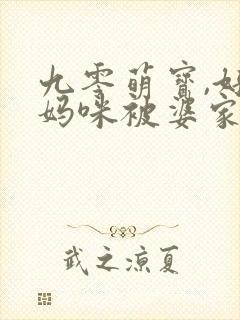 九零萌宝,
妈咪被婆家
武之凉夏